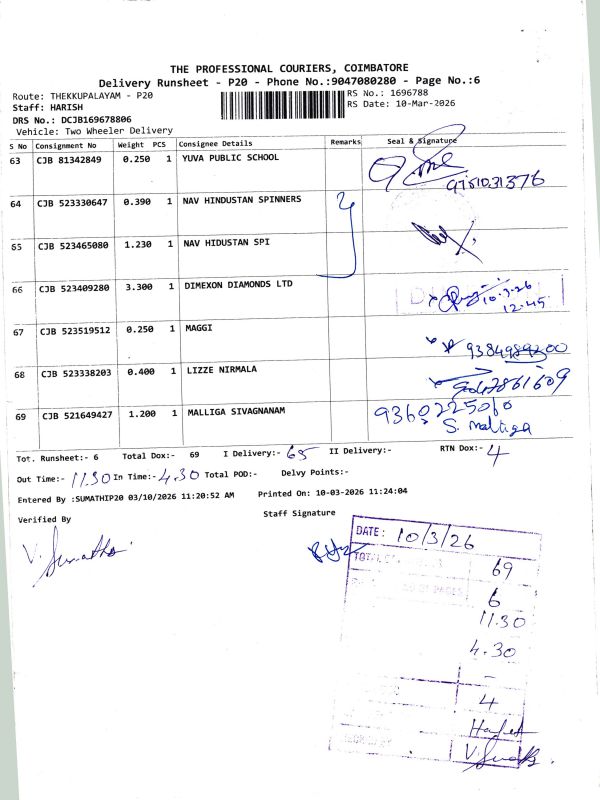 THE PROFESSIONAL COURIERS, COIMBATORE
Delivery Runsheet - P20 - Phone No.:9047080280 - Page No.:6
Route: THEKKUPALAYAM - P20
RS No.: 1696788
Staff: HARISH
RS Date: 10-Mar-2026
DRS No.: DCJB169678806
Vehicle: Two Wheeler Delivery
S No Consignment No Weight PCS Consignee Details Remarks Seal & Signature
63 CJB 81342849 0.250 1 YUVA PUBLIC SCHOOL
9751031376
64 CJB 523330647 0.390 1 NAV HINDUSTAN SPINNERS
65 CJB 523465080 1.230 1 NAV HIDUSTAN SPI
66 CJB 523409280 3.300 1 DIMEXON DIAMONDS LTD
10-3-26
12.45
67 CJB 523519512 0.250 1 MAGGI
9384989200
68 CJB 523338203 0.400 1 LIZZE NIRMALA
9047861609
69 CJB 521649427 1.200 1 MALLIGA SIVAGNANAM
9360225060
S. malliga
Tot. Runsheet:- 6 Total Dox:- 69 I Delivery:- 65 II Delivery:- RTN Dox:- 4
Out Time:- 11.30 In Time:- 4.30 Total POD:- Delvy Points:-
Entered By :SUMATHIP20 03/10/2026 11:20:52 AM Printed On: 10-03-2026 11:24:04
Verified By
Staff Signature
V. Sumathi
DATE: 10/3/26
69
6
11.30
4.30
-
4
Harish
V. Sumathi